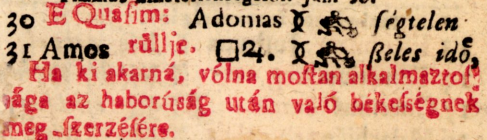 30 E Quasim: Adonias ſégtelen
31 Amos rüllje. □24. ßeles idő,
Ha ki akarná, vólna moſtan alkalmaztoſ-
sága az haborúság után való békeſségnek
meg ſzerzéſére.